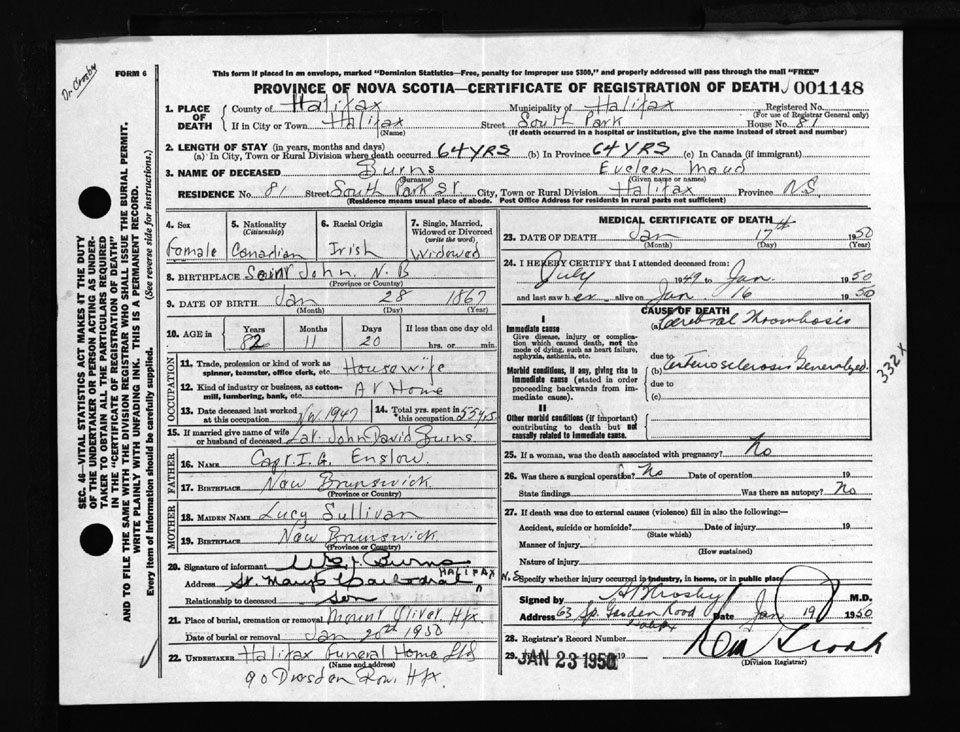 Dr Crosby
FORM 6
This form if placed in an envelope, marked "Dominion Statistics—Free, penalty for improper use $300," and properly addressed will pass through the mail "FREE"
PROVINCE OF NOVA SCOTIA—CERTIFICATE OF REGISTRATION OF DEATH 001148
1. PLACE OF DEATH
County of Halifax Municipality of Halifax Registered No.
(For use of Registrar General only)
If in City or Town Halifax Street South Park House No. 81
(Name) (If death occurred in a hospital or institution, give the name instead of street and number)
2. LENGTH OF STAY (in years, months and days)
(a) In City, Town or Rural Division where death occurred 64 YRS (b) In Province 64 YRS (c) In Canada (if immigrant)
3. NAME OF DECEASED Burns Eveleen Maud
(Surname) (Given name or names)
RESIDENCE No. 81 Street South Park St. City, Town or Rural Division Halifax Province N.S.
(Residence means usual place of abode. Post Office Address for residents in rural parts not sufficient)
4. Sex Female
5. Nationality (Citizenship) Canadian
6. Racial Origin Irish
7. Single, Married, Widowed or Divorced (write the word) Widowed
8. BIRTHPLACE Saint John. N.B
(Province or Country)
9. DATE OF BIRTH Jan 28 1867
(Month) (Day) (Year)
10. AGE in Years Months Days If less than one day old
82 11 20 hrs. or min.
OCCUPATION
11. Trade, profession or kind of work as spinner, teamster, office clerk, etc. Housewife
12. Kind of industry or business, as cotton-mill, lumbering, bank, etc. At Home
13. Date deceased last worked at this occupation 1947
14. Total yrs. spent in this occupation 55 yrs.
15. If married give name of wife or husband of deceased Lat. John David Burns.
FATHER
16. NAME Capt. I. G. Enslow.
17. BIRTHPLACE New Brunswick
(Province or Country)
MOTHER
18. MAIDEN NAME Lucy Sullivan
19. BIRTHPLACE New Brunswick.
(Province or Country)
20. Signature of informant Burns
Address St. Mary's Cathedral HALIFAX
Relationship to deceased Son
21. Place of burial, cremation or removal Mount Olivet Hfx
Date of burial or removal Jan 20th 1950
22. UNDERTAKER Halifax Funeral Home Ltd
(Name and address)
90 Dresden Row. Hfx
MEDICAL CERTIFICATE OF DEATH
23. DATE OF DEATH Jan 17th 1950
(Month) (Day) (Year)
24. I HEREBY CERTIFY that I attended deceased from:
July 1949 to Jan. 1950
and last saw her alive on Jan. 16 1950
CAUSE OF DEATH
I
Immediate cause
Give disease, injury or complication which caused death, not the mode of dying, such as heart failure, asphyxia, asthenia, etc.
(a) Cerebral Thrombosis
due to
Morbid conditions, if any, giving rise to immediate cause (stated in order proceeding backwards from immediate cause).
(b) Arteriosclerosis Generalized.
due to
(c)
332 x
II
Other morbid conditions (if important) contributing to death but not causally related to immediate cause.
25. If a woman, was the death associated with pregnancy? No
26. Was there a surgical operation? No Date of operation 19
State findings Was there an autopsy? No
27. If death was due to external causes (violence) fill in also the following:—
Accident, suicide or homicide? Date of injury 19
(State which)
Manner of injury
(How sustained)
Nature of injury
N.S. Specify whether injury occurred in industry, in home, or in public place
Signed by Crosby M.D.
Address 63 Sp. Garden Road Date Jan 19 1950
Halifax
28. Registrar's Record Number
29. JAN 23 1950 19
(Division Registrar)
SEC. 46—VITAL STATISTICS ACT MAKES IT THE DUTY
OF THE UNDERTAKER OR PERSON ACTING AS UNDER-
TAKER TO OBTAIN ALL THE PARTICULARS REQUIRED
IN THE "CERTIFICATE OF REGISTRATION OF DEATH"
AND TO FILE THE SAME WITH THE DIVISION REGISTRAR WHO SHALL ISSUE THE BURIAL PERMIT.
WRITE PLAINLY WITH UNFADING INK. THIS IS A PERMANENT RECORD.
Every item of Information should be carefully supplied. (See reverse side for instructions.)